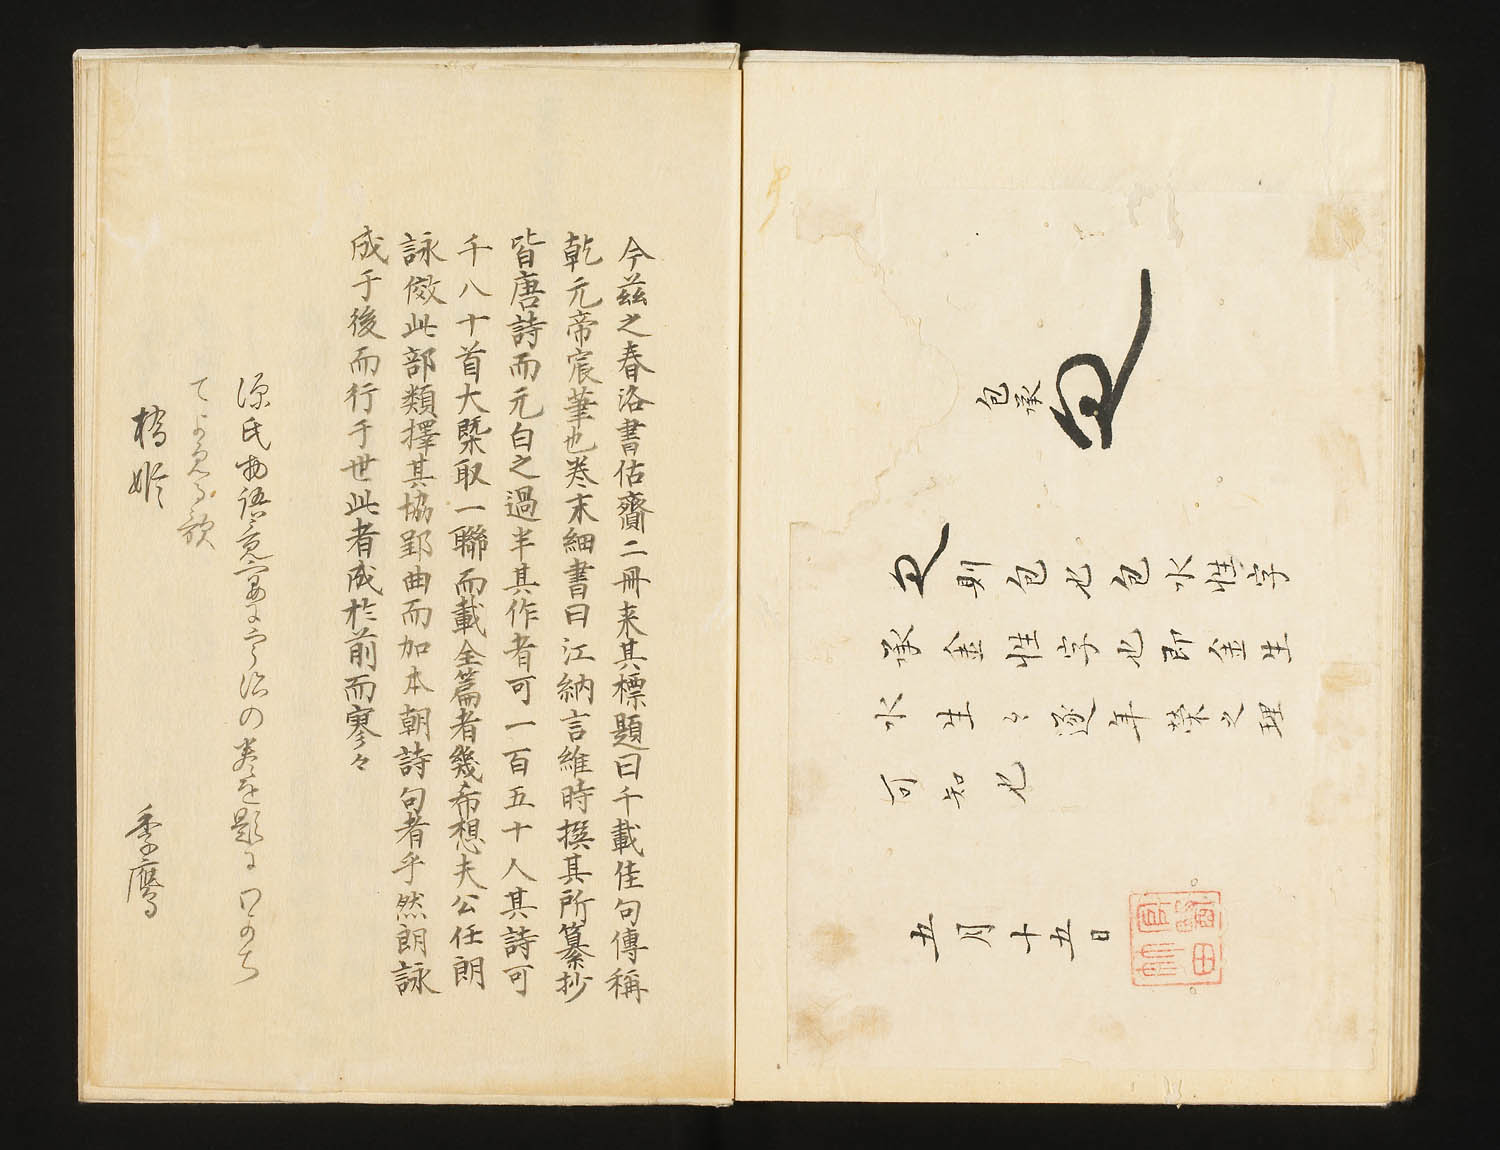 包承
包則包也包水性字
承金性字也即金生
水生々逐年榮之理
可知也
五月十五日
今茲之春洛書估齎二冊来其標題曰千載佳句傳稱
乾元帝宸筆也巻末細書曰江納言維時撰其所纂抄
皆唐詩而元白之過半其作者可一百五十人其詩可
千八十首大槩取一聯而載全篇者幾希想夫公任朗
詠傚此部類擇其協郢曲而加本朝詩句者乎然朗詠
成于後而行于世此者成於前而寥々
源氏物語竟宴に宇治の巻を題にわかち
てよめる歌
橋姫
季鷹